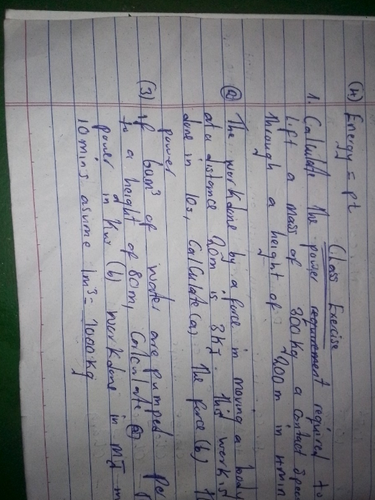 (4) Energy = pt
Class Exercise
1. Calculate the power requirement required t
lift a mass of 300kg a contact spee
through a height of 4000m in
(2) The workdone by a force in moving a body
at a distance 20m is 3kJ. This work is
done in 10s, Calculate (a) The force (b) t
power
(3) If 60m³ of water are pumped pe
to a height of 80m, Calculate (a)
power in kw (b) workdone in MJ
10mins assume 1m³ = 1000kg